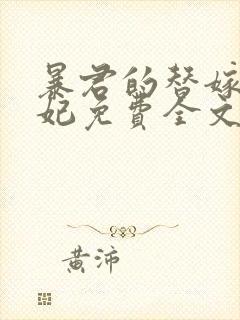 暴君的替嫁
妃免费全文
黄沛